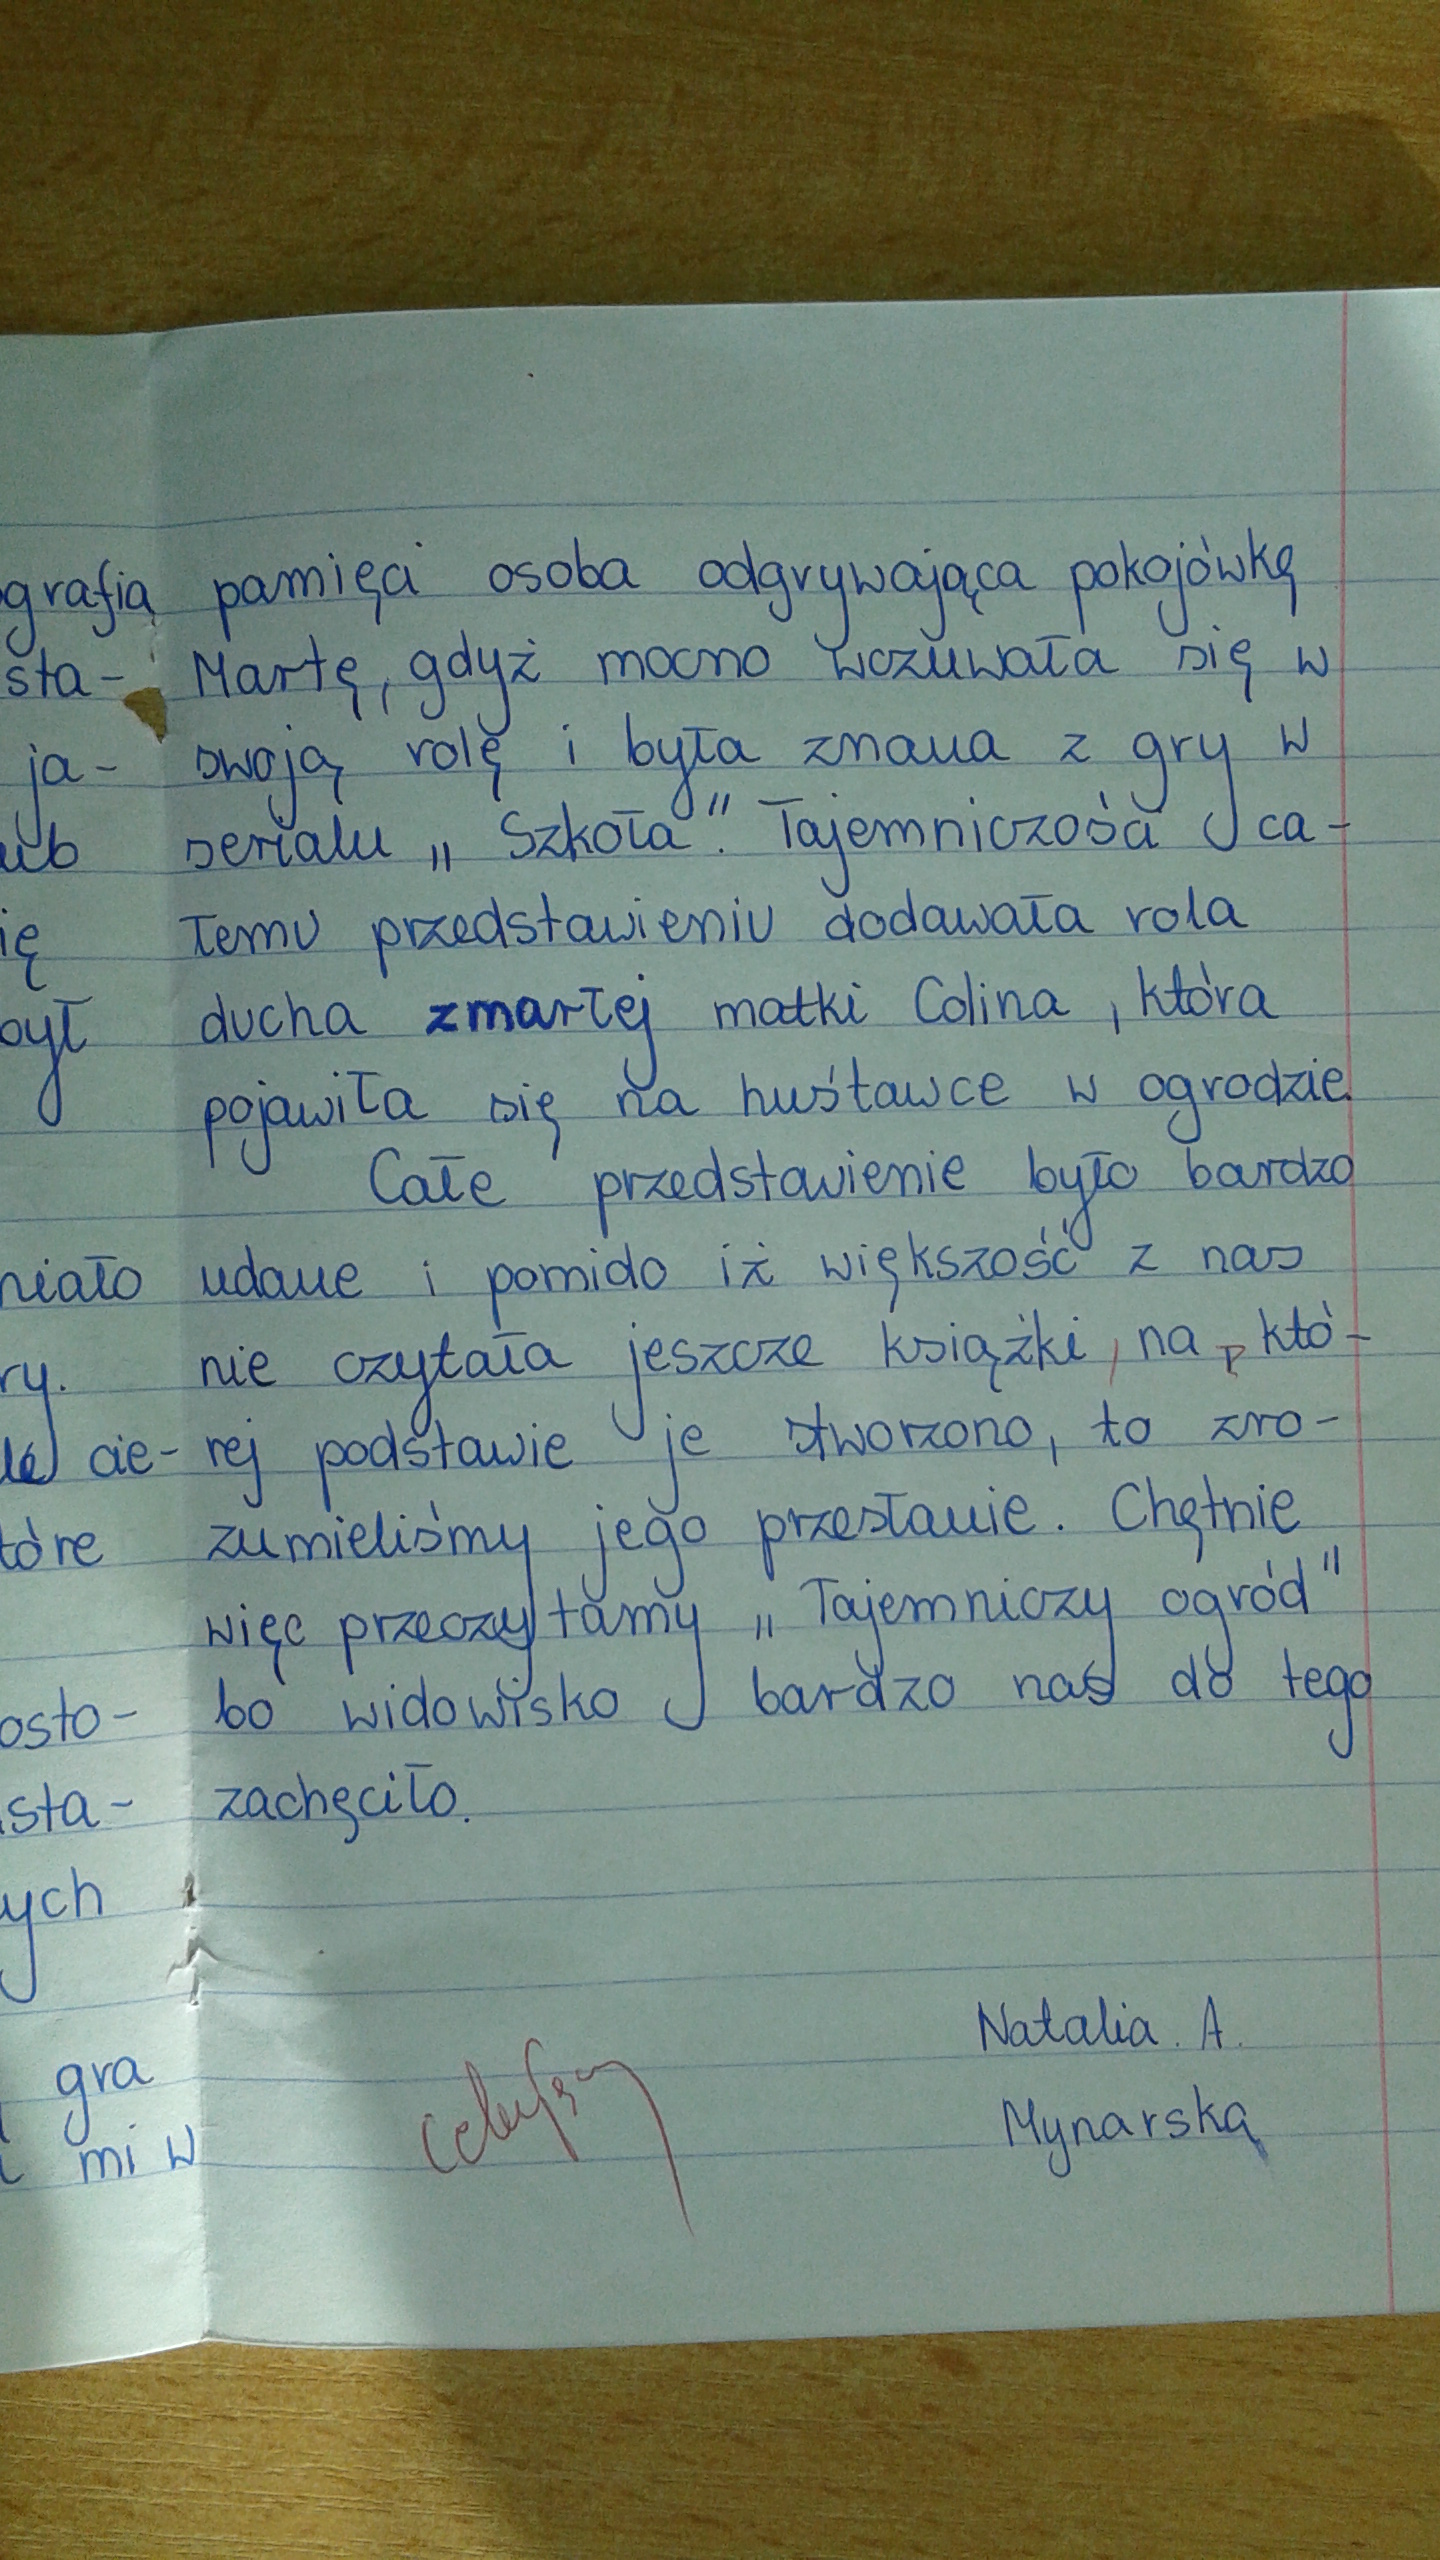 grafią
sta-
ja-
ub
ię
był
niało
ry.
cie-
tóre
osto-
sta-
ych
gra
mi w
pamięci osoba odgrywająca pokojówkę
Martę, gdyż mocno wczuwała się w
swoją rolę i była znana z gry w
serialu „Szkoła". Tajemniczości ca-
łemu przedstawieniu dodawała rola
ducha zmarłej matki Colina, która
pojawiła się na huśtawce w ogrodzie.
Całe przedstawienie było bardzo
udane i pomido iż większość z nas
nie czytała jeszcze książki, na któ-
rej podstawie je stworzono, to zro-
zumieliśmy jego przesłanie. Chętnie
więc przeczytamy „Tajemniczy ogród"
bo widowisko bardzo nas do tego
zachęciło.
Natalia. A.
Mynarska